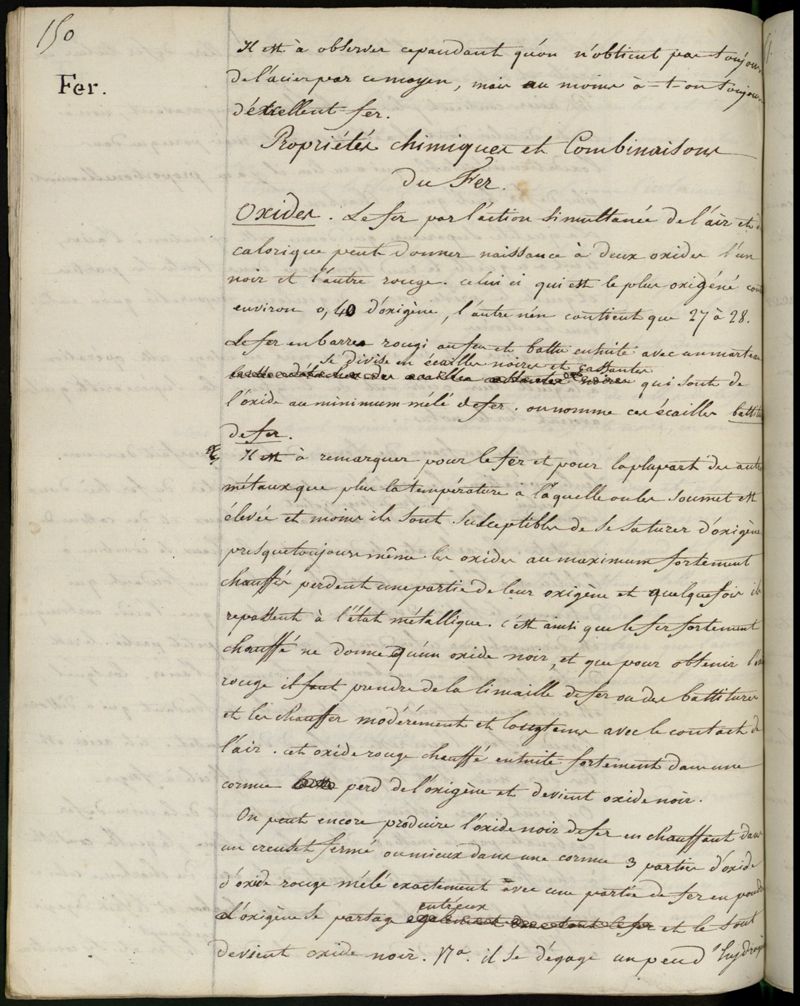 150
Fer.
Il est à observer cependant qu'on n'obtient pas toujours
de l'acier par ce moyen, mais au moins à-t-on toujours
d'éxcellent fer.
Propriétés chimiques et Combinaisons
du Fer.
Oxides. Le fer par l'action simultanée de l'air et d
calorique peut donner naissance à deux oxides l'un
noir et l'autre rouge. celui ci qui est le plus oxigéné con
environ 0,40 d'oxigène, l'autre n'en contient que 27 à 28.
Le fer en barres rougi au feu et battu ensuite avec un marteau
se divise en écailles noires et cassantes
qui sont de
l'oxide au minimum mêlé de fer. on nomme ces écailles battitu
de fer.
Il est à remarquer pour le fer et pour la plupart des autre
métaux que plus la température à laquelle on les soumet est
élevée et moins ils sont susceptibles de se saturer d'oxigène
presque toujours même les oxides au maximum fortement
chauffés perdent une partie de leur oxigène et quelquefois ils
repassent à l'état métallique. c'est ainsi que le fer fortement
chauffé ne donne qu'un oxide noir, et que pour obtenir l'ox
rouge il faut prendre de la limaille de fer ou des battitures
et les chauffer modérément et longtems avec le contact de
l'air. cet oxide rouge chauffé ensuite fortement dans une
cornue perd de l'oxigène et devient oxide noir.
On peut encore produire l'oxide noir de fer en chauffant dans
un creuset fermé ou mieux dans une cornue 3 parties d'oxide
d'oxide rouge mêlé exactement avec une partie de fer en poudre
entr'eux
L'oxigène se partage également avec tout le fer et le tout
devient oxide noir. Na. il se dégage un peu d'hydrogè